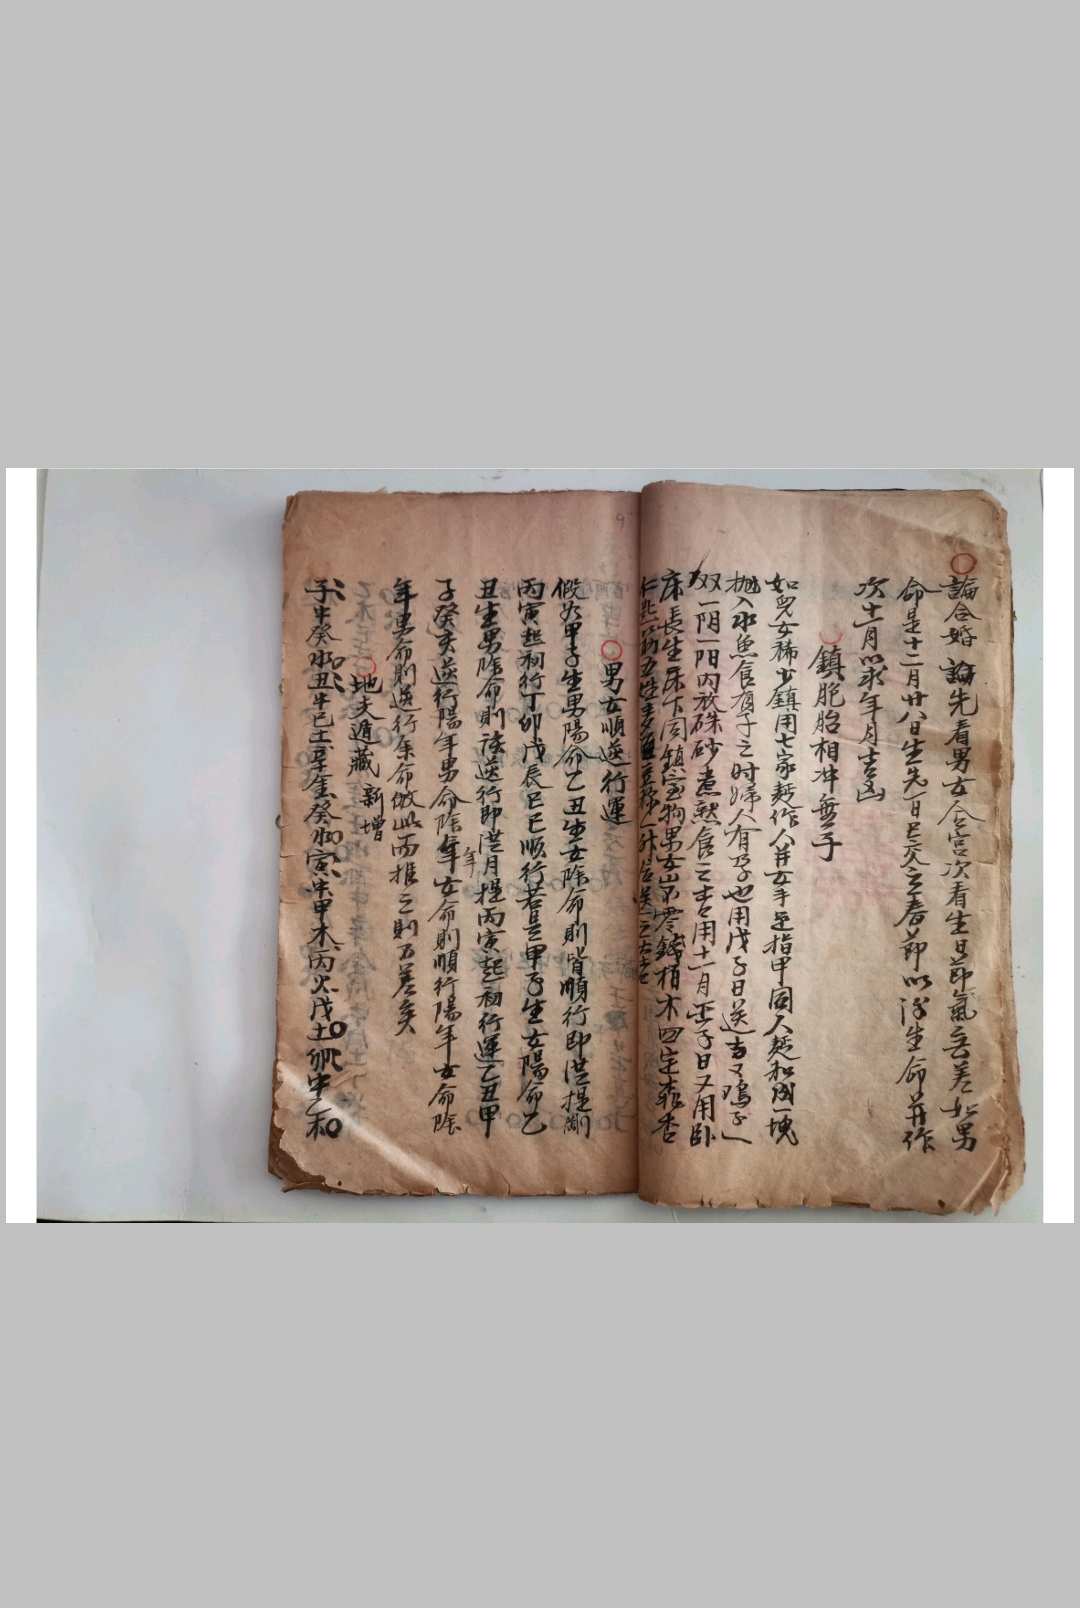 論合婚 論先看男女合宮次看生日節氣無差如男
命是十二月廿八日生先一日已交立春節以後生命并作
次十一月以求年月吉凶
鎮胞胎相冲無子
如兒女稀少鎮用七家麪作人并女手足指甲同人麪和成一塊
抛入水魚食有子之时婦人有孕也用戊子日送吉又鸡子一
双一阴一阳内放硃砂煮熟食之吉用十一月壬子日又用卧
床長生床下同鎮宝物男女 零錢栢木四定 杏
仁 五 一升 送之大吉
男女順逆行運
假如甲子生男陽命乙丑生女陰命則皆順行即從提剛
丙寅起初行丁卯戊辰己巳順行若是甲子生女陽命乙
丑生男陰命則該逆行即從月提丙寅起初行運乙丑甲
子癸亥逆行陽年男命陰年女命則順行陽年女命陰
年男命則逆行余命倣此而推之則万差矣
地支遁藏 新增
子中癸水丑中己土辛金癸水寅中甲木丙火戊土卯中乙木